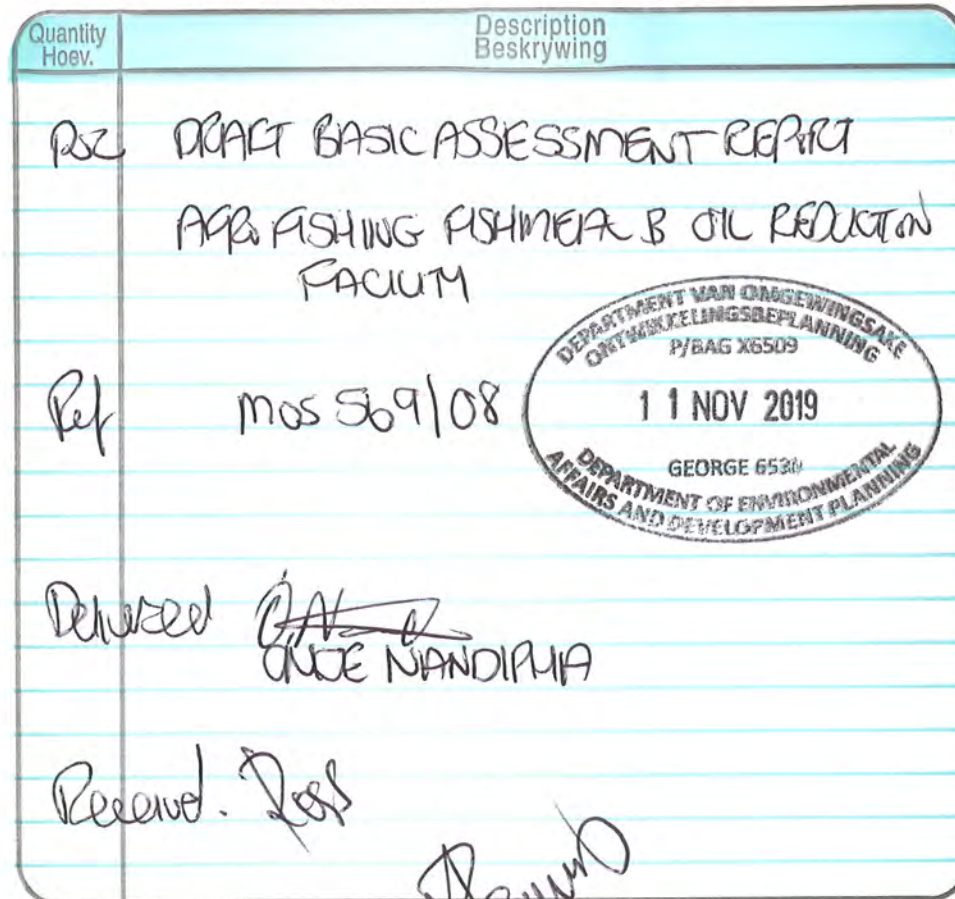 Quantity
Hoev.
Description
Beskrywing
DRAFT BASIC ASSESSMENT REPORT
FISHING FISHMEAL & OIL REDUCTION
FACILITY
Ref mos 569/08
DEPARTMENT VAN OMGEWINGSAKE
ONTWIKKELINGSBEPLANNING
P/BAG X6509
11 NOV 2019
GEORGE 6530
DEPARTMENT OF ENVIRONMENTAL
AFFAIRS AND DEVELOPMENT PLANNING
Delivered
NANDIPHA
Received.